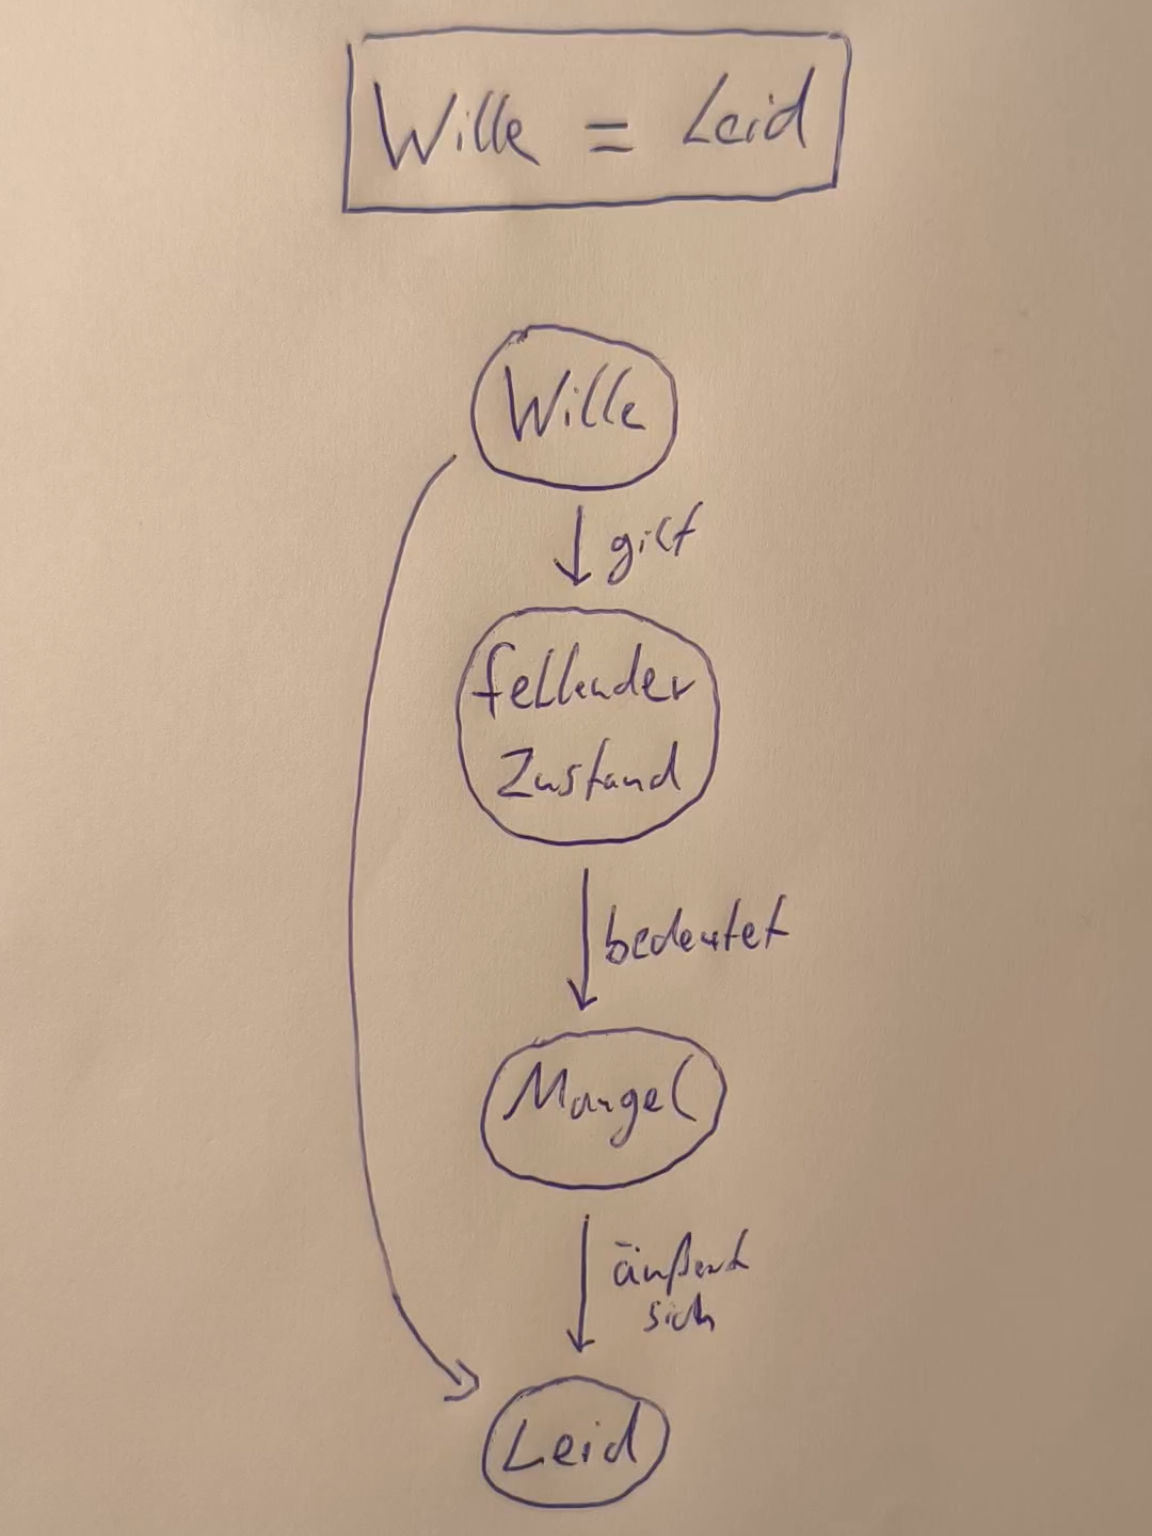 Wille = Leid
Wille
gilt
fehlender
Zustand
bedeutet
Mangel
äußert
sich
Leid